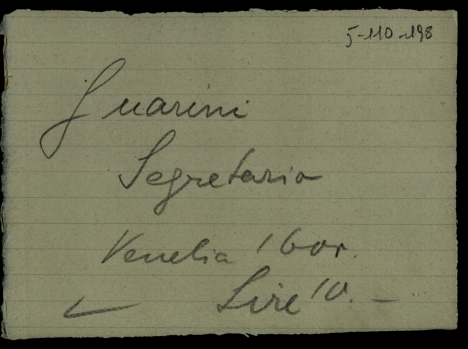 5-110-198
Guarini
Segretario
Venetia 1 Gor.
Lire 10.-